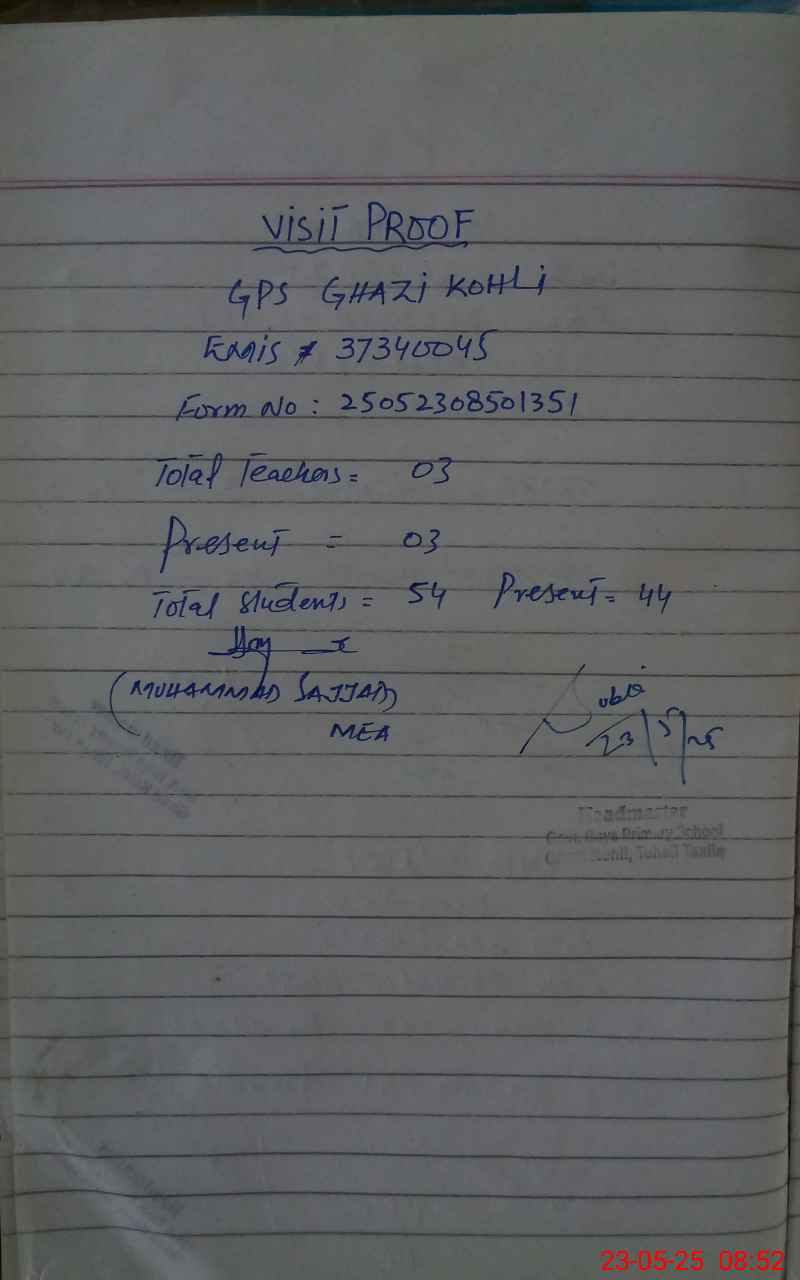 VISIT PROOF
GPS GHAZI KOHLI
EMIS # 37340045
Form No : 25052308501351
Total Teachers = 03
Present = 03
Total Students = 54 Present = 44
(MUHAMMAD SAJJAD)
MEA
23/5/25
Headmaster
Govt. Boys Primary School
Kohli, Tehsil Taxila
23-05-25 08:52